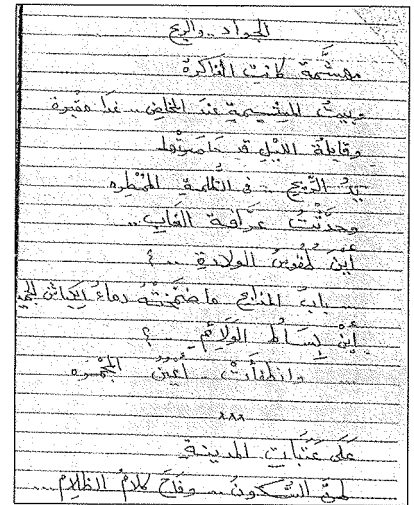 الجواد والريح
مهشّمة كانتِ الذاكرة
وبيتُ المشيمةِ عند المخاض.. غدا مقبرة
وقابلةُ الليل قد حاصرتها
يدُ الرّيحِ.. في الظُّلمةِ المُمْطِره
وحدّثتُ عرّافةَ الغابِ..
أينَ طُقوسُ الولادةِ ...؟
بابُ المذابحِ ما ضمّختْهُ دماءُ الكباشِ
أينَ بِساطُ الوَلائمِ ..؟
وانطفأتْ.. أعينُ المجْمره
٨٨٨
على عَتَباتِ المدينةِ
السّكونُ.. وفاحَ كلامُ الظلام...